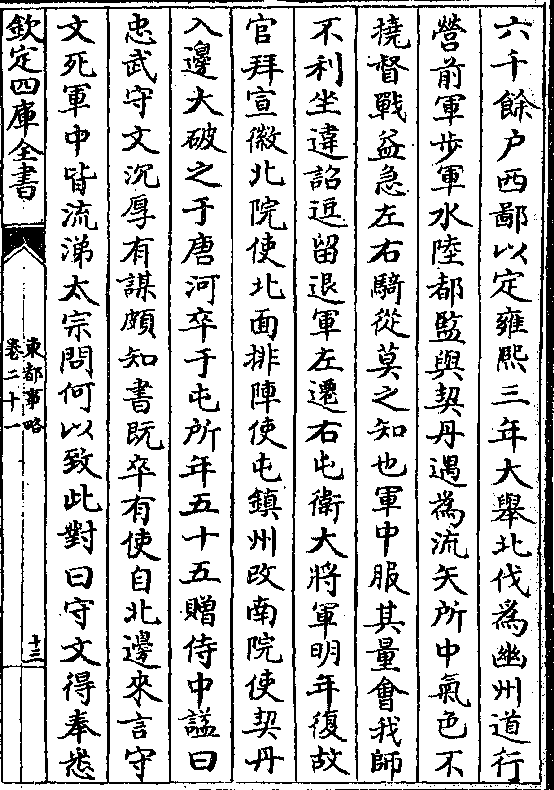 六千餘户西鄙以定雍熙三年大舉北伐為幽州道行
營前軍步軍水陸都監與契丹遇為流矢所中氣色不
撓督戰益急左右騎從莫之知也軍中服其量會我師
不利坐違詔逗留退軍左遷右屯衛大將軍明年復故
官拜宣徽北院使北面排陣使屯鎮州改南院使契丹
入邊大破之于唐河卒于屯所年五十五贈侍中諡曰
忠武守文沉厚有謀頗知書既卒有使自北邊來言守
文死軍中皆流涕太宗問何以致此對曰守文得奉悉
欽定四庫全書
東都事略
卷二十一
十三